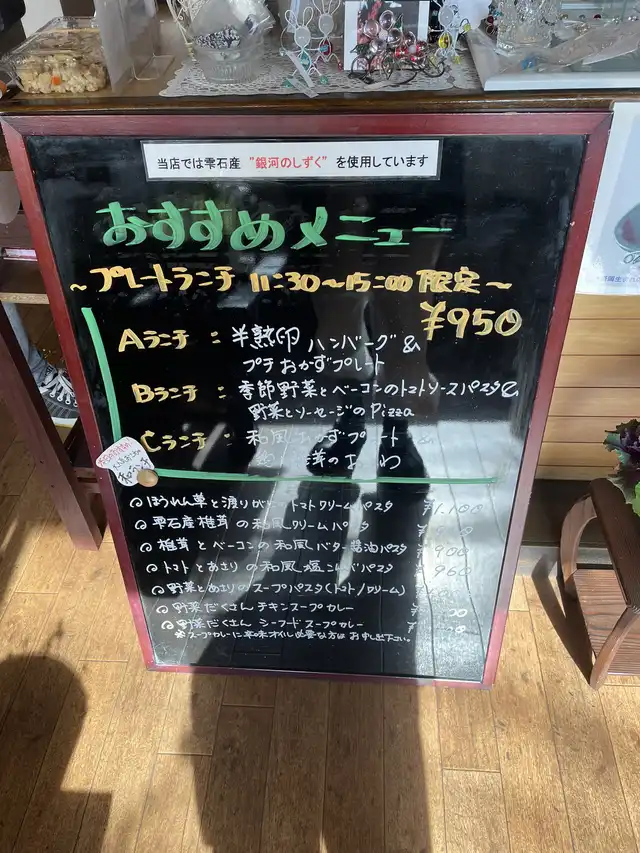 当店では雫石産 "銀河のしずく" を使用しています
おすすめメニュー
～プレートランチ 11:30～15:00 限定～
¥950
Aランチ : 半熟卵 ハンバーグ&
プチおかずプレート
Bランチ : 季節野菜とベーコンのトマトソースパスタ&
野菜とソーセージのPizza
Cランチ : 和風おかずプレート
ほうれん草と渡りがにのトマトクリームパスタ ¥1.100
雫石産椎茸の和風クリームパスタ
椎茸とベーコンの和風バター醤油パスタ 900
トマトとあさりの和風塩 パスタ 960
野菜とあさりのスープパスタ(トマト/クリーム)
野菜だくさん チキンスープカレー
野菜だくさん シーフードスープカレー
※スープカレーに辛味オイル必要な方は お申し出下さい。